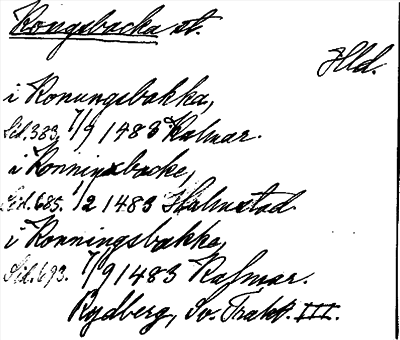 Kongsbacka st.
Hld.
i Konungsbakka,
Sid. 383. 7/9 1483 Kalmar.
i Konningxbacke,
Sid. 685. 1/2 1483 Halmstad.
i Konningsbakka,
Sid. 693. 7/9 1483 Kalmar.
Rydberg, Sv. Trakt. III.